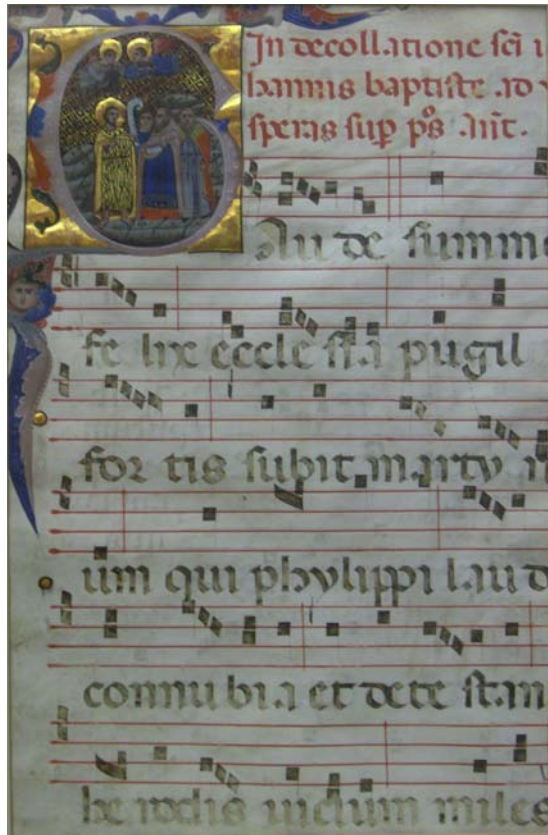 In decollatione sci i
hannis baptiste ad v
speris sup ps Ant.
GAu de summe
fe lix eccle sia pugil
for tis subit marty ri
um qui phylippi laud
connu bia et dete stan
he rodis uictum miles